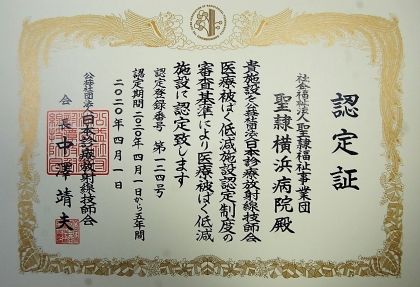 認定証
社会福祉法人聖隷福祉事業団
聖隷横浜病院殿
貴施設を公益社団法人日本診療放射線技師会
医療被ばく低減施設認定制度の
審査基準により医療被ばく低減
施設に認定致します
認定登録番号 第一二四号
認定期間二〇二〇年四月一日から五年間
二〇二〇年四月一日
公益社団法人日本診療放射線技師会
会長中澤靖夫